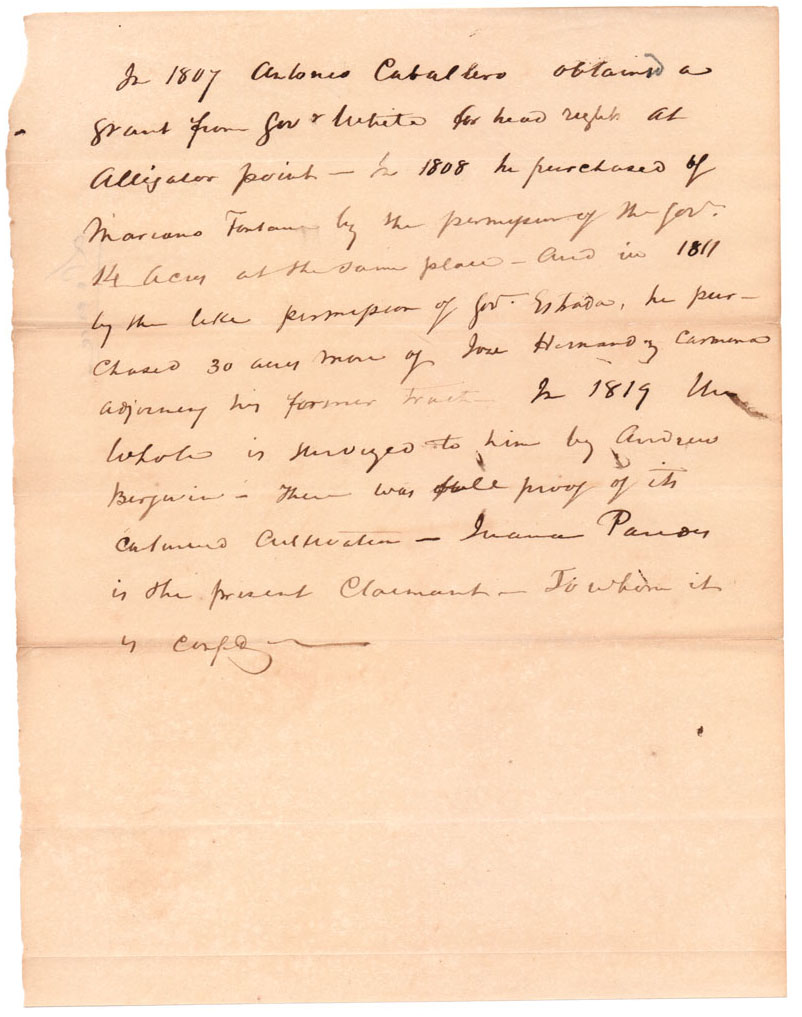 In 1807 Antonio Caballero obtained a
grant from Govr White for head rights at
Alligator point — In 1808 he purchased of
Mariano Fontane by the permission of the Govr.
14 Acres at the same place — And in 1811
by the like permission of Govr. Estrada, he pur–
chased 30 acres more of Jose Hernandez Carmena
adjoining his former tract — In 1819 the
Whole is surveyed to him by Andrew
— There was full proof of its
Cultivation — Juana Paredes
is the present Claimant — To whom it
is Confd